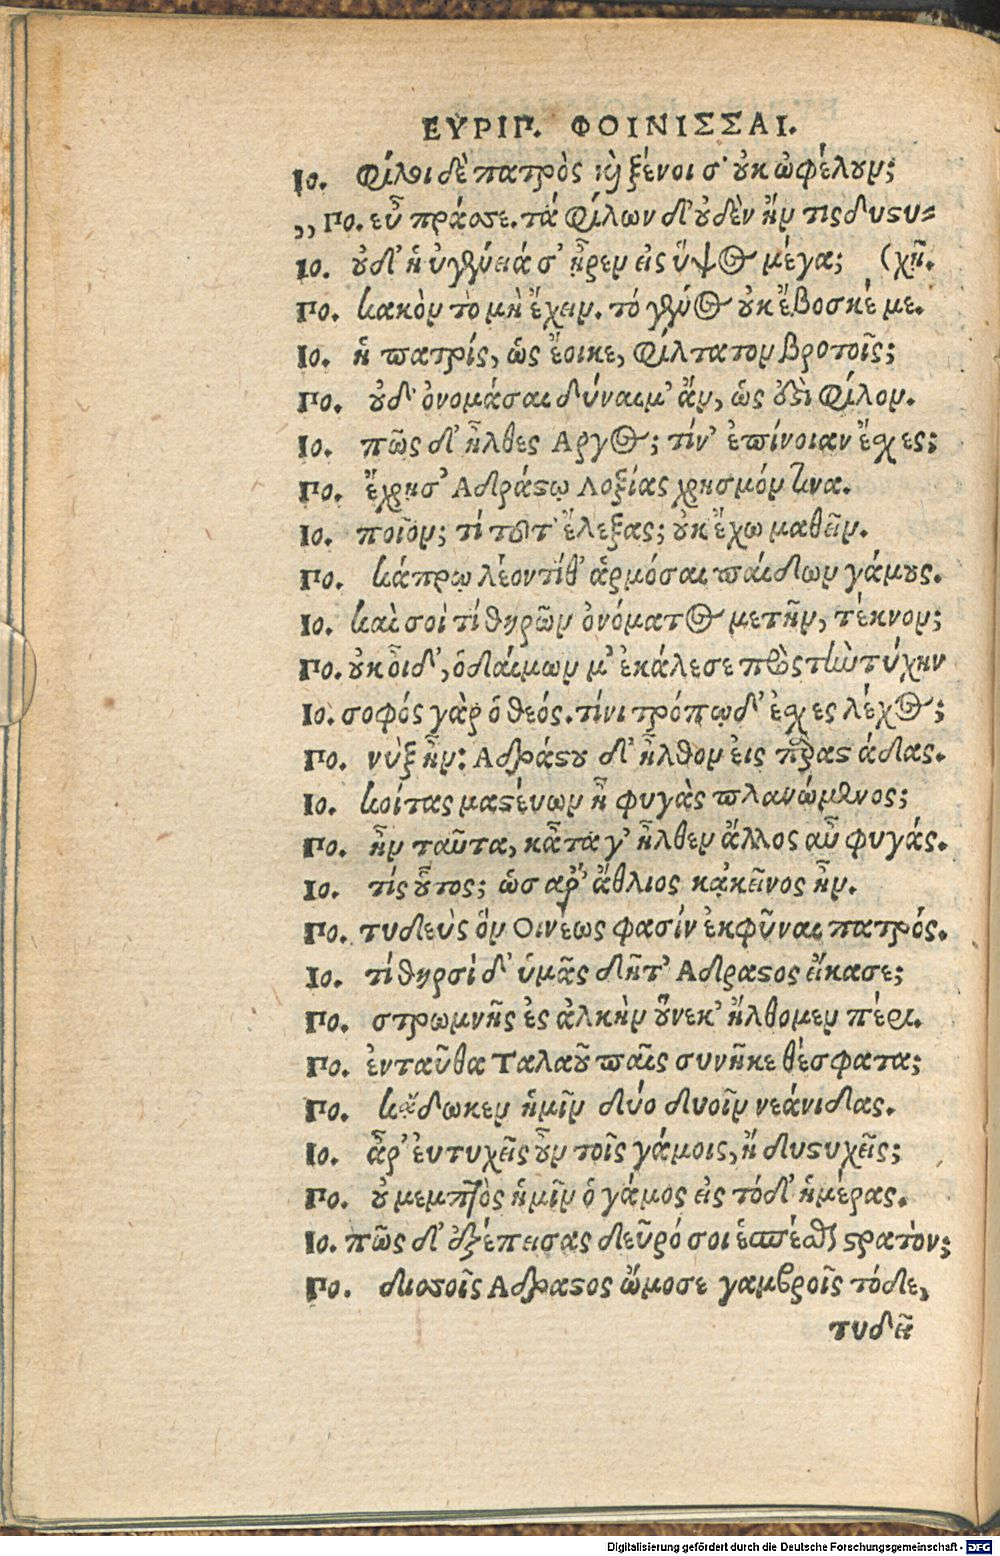 ΕΥΡΙΠ. ΦΟΙΝΙΣΣΑΙ.
Ιο. Φίλοι δὲ πατρὸς καὶ ξένοι σ' οὐκ ὠφέλουν;
,,Πο. εὖ πράσσε. τὰ φίλων δ' οὐδὲν ἤν τις δυστυ-
Ιο. οὐδ' ἡ εὐγένειά σ' ἦρεν εἰς ὕψος μέγα; (χῇ.
Πο. κακὸν τὸ μὴ ἔχειν. τὸ γένος οὐκ ἔβοσκέ με.
Ιο. ἡ πατρίς, ὡς ἔοικε, φίλτατον βροτοῖς;
Πο. οὐδ' ὀνομάσαι δύναιμ' ἄν, ὡς ἐστὶ φίλον.
Ιο. πῶς δ' ἦλθες Αργος; τίν' ἐπίνοιαν ἔσχες;
Πο. ἔχρησ' Αδράστῳ Λοξίας χρησμόν τινα.
Ιο. ποῖον; τί τοῦτ' ἔλεξας; οὐκ ἔχω μαθεῖν.
Πο. κάπρῳ λέοντί θ' ἁρμόσαι παίδων γάμους.
Ιο. καὶ σοὶ τί θηρῶν ὀνόματος μετῆν, τέκνον;
Πο. οὐκ οἶδ', ὁ δαίμων μ' ἐκάλεσε πρὸς τὴν τύχην
Ιο. σοφός γὰρ ὁ θεός. τίνι τρόπῳ δ' ἔσχες λέχος;
Πο. νὺξ ἦν: Αδράστου δ' ἦλθον εἰς παραστάδας.
Ιο. κοίτας μαστεύων ἢ φυγὰς πλανώμενος;
Πο. ἦν ταῦτα, κᾆτά γ' ἦλθεν ἄλλος αὖ φυγάς.
Ιο. τίς οὗτος; ὡς ἄρ' ἄθλιος κᾀκεῖνος ἦν.
Πο. τυδεὺς ὃν Οινέως φασίν ἐκφῦναι πατρός.
Ιο. τί θηρσὶ δ' ὑμᾶς δῆτ' Αδραστος εἴκασε;
Πο. στρωμνῆς ἐς ἀλκὴν οὕνεκ' ἤλθομεν πέρι.
Πο. ἐνταῦθα Ταλαοῦ παῖς συνῆκε θέσφατα;
Πο. κᾄδωκεν ἡμῖν δύο δυοῖν νεάνιδας.
Ιο. ἆρ' ἐυτυχεῖς οὖν τοῖς γάμοις, ἢ δυστυχεῖς;
Πο. οὐ μεμπτὸς ἡμῖν ὁ γάμος εἰς τόδ' ἡμέρας.
Ιο. πῶς δ' ἐξέπεισας δεῦρό σοι ἕπεσθαι στρατὸν;
Πο. δισσοῖς Αδραστος ὤμοσε γαμβροῖς τόδε,
τυδεῖ
Digitalisierung gefördert durch die Deutsche Forschungsgemeinschaft - DFG